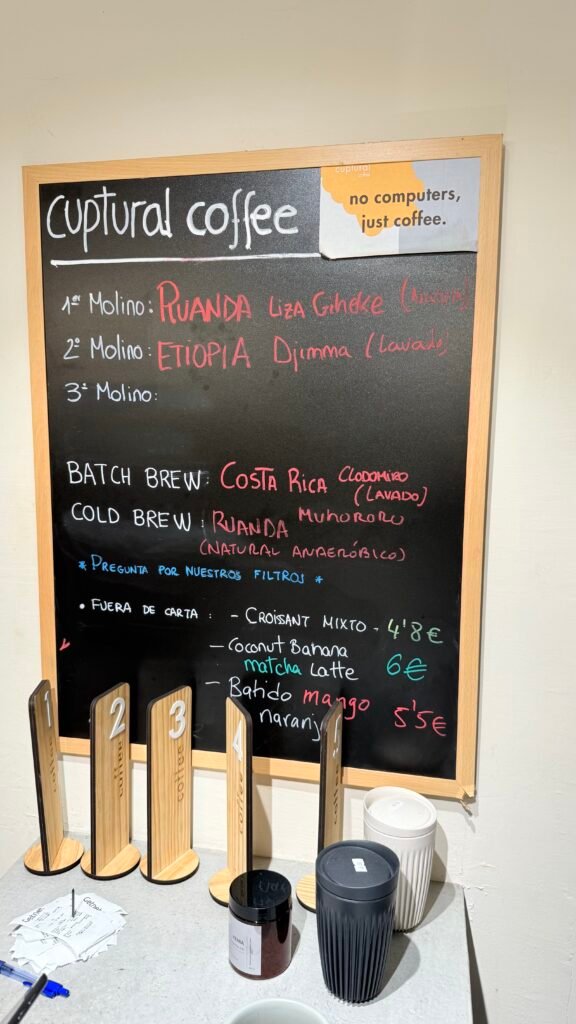 cuptural coffee
cuptural
no computers,
just coffee.
1er Molino: RUANDA Liza Giheke (
2º Molino: ETIOPIA Djimma (Lavado)
3º Molino:
BATCH BREW: COSTA RICA CLODOMIRO
(LAVADO)
COLD BREW: RUANDA MUHORORO
(NATURAL ANAERÓBICO)
* PREGUNTA POR NUESTROS FILTROS *
• FUERA DE CARTA: - CROISANT MIXTO - 4'8€
- Coconut Banana
matcha Latte 6€
- Batido mango
naranj 5'5€
1
2
3
4
coffee
coffee
coffee